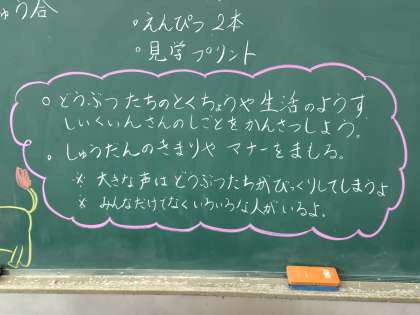 ゅう合
○えんぴつ 2本
○見学プリント
○どうぶつたちのとくちょうや生活のようす
しいくいんさんのしごとをかんさつしよう。
○しゅうだんのきまりや マナーをまもる。
※ 大きな声はどうぶつたちがびっくりしてしまうよ
※ みんなだけでなくいろいろな人がいるよ。